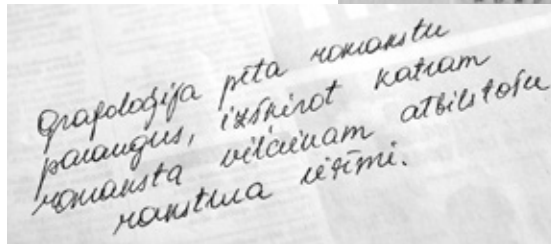 Grafoloģija pēta rokrakstu
paraugus, izšķirot katram
rokraksta vilcienam atbilstošu
rakstura iezīmi.